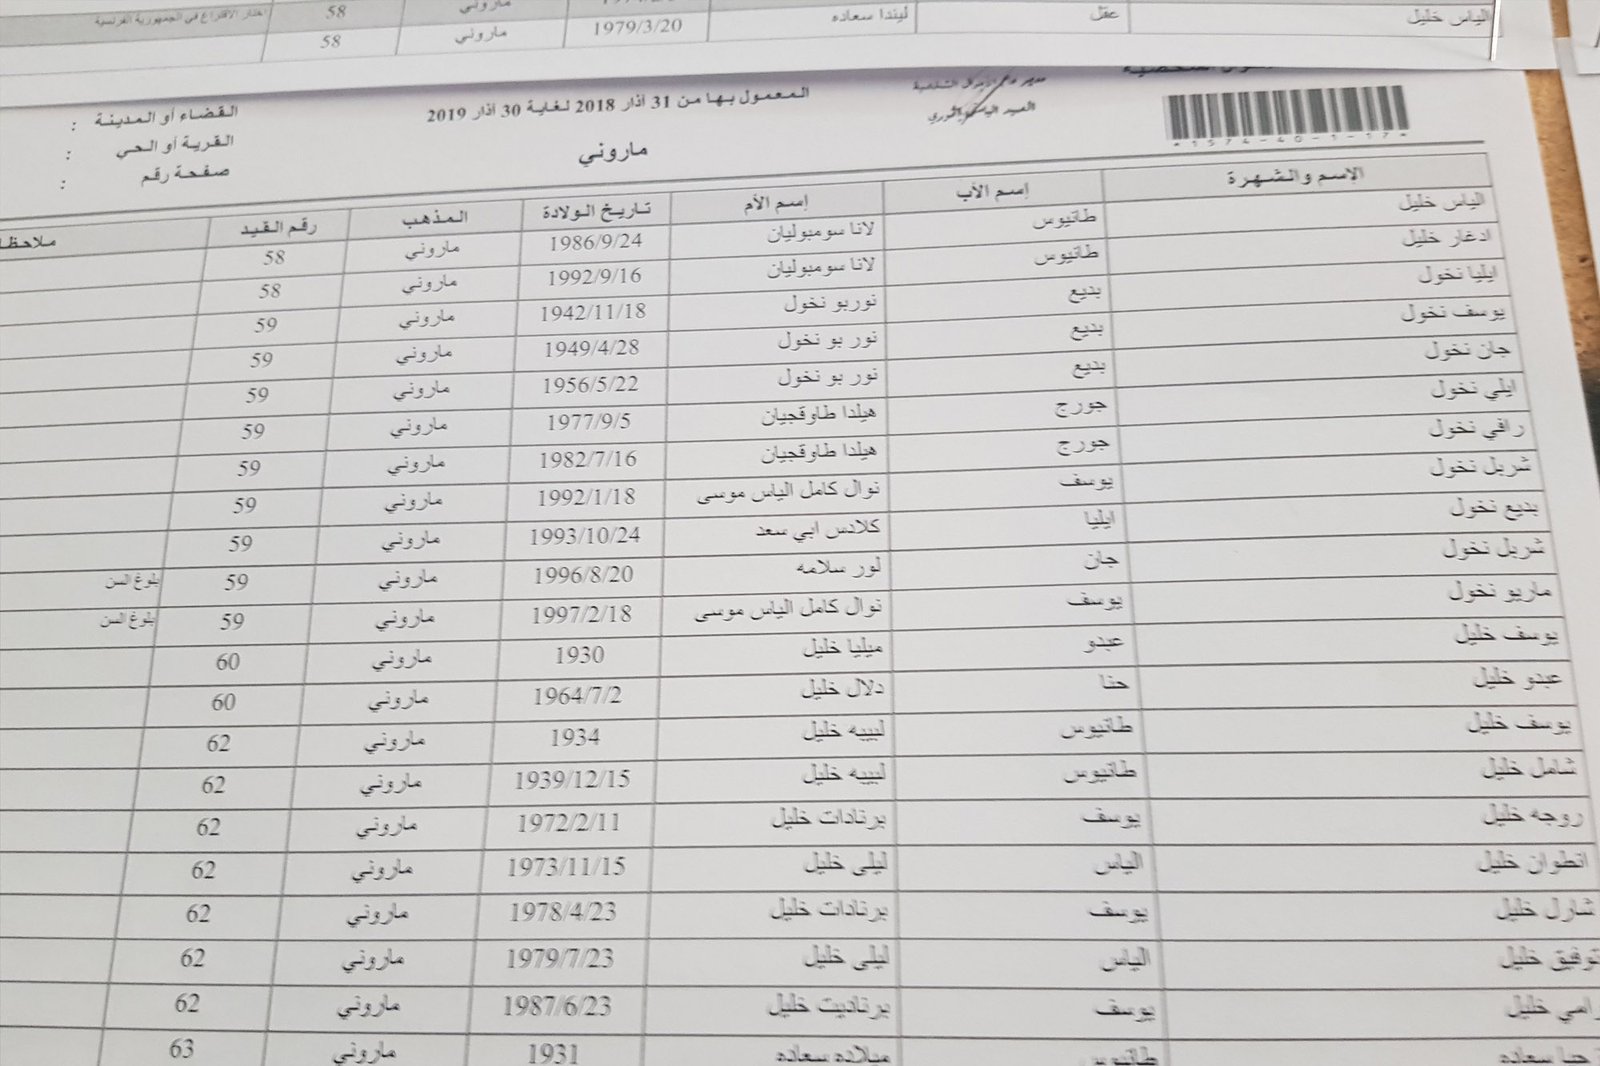 الياس خليل عقل ليندا سعاده 1979/3/20 ماروني 58 اختار الاقتراع في الجمهورية الفرنسية
ماروني 58
المعمول بها من 31 اذار 2018 لغاية 30 اذار 2019
ماروني
القضاء أو المدينة :
القرية أو الحي :
صفحة رقم :
*1574-40-1-17*
الإسم والشهرة إسم الأب إسم الأم تاريخ الولادة المذهب رقم القيد
الياس خليل طانيوس لانا سومبوليان 1986/9/24 ماروني 58
ادغار خليل طانيوس لانا سومبوليان 1992/9/16 ماروني 58
ايليا نخول بديع نوربو نخول 1942/11/18 ماروني 59
يوسف نخول بديع نور بو نخول 1949/4/28 ماروني 59
جان نخول بديع نور بو نخول 1956/5/22 ماروني 59
ايلي نخول جورج هيلدا طاوقجيان 1977/9/5 ماروني 59
رافي نخول جورج هيلدا طاوقجيان 1982/7/16 ماروني 59
شربل نخول يوسف نوال كامل الياس موسى 1992/1/18 ماروني 59
بديع نخول ايليا كلادس ابي سعد 1993/10/24 ماروني 59
شربل نخول جان لور سلامه 1996/8/20 ماروني 59 بلوغ السن
ماريو نخول يوسف نوال كامل الياس موسى 1997/2/18 ماروني 59 بلوغ السن
يوسف خليل عبدو ميليا خليل 1930 ماروني 60
عبدو خليل حنا دلال خليل 1964/7/2 ماروني 60
يوسف خليل طانيوس لبيبه خليل 1934 ماروني 62
شامل خليل طانيوس لبيبه خليل 1939/12/15 ماروني 62
روجه خليل يوسف برنادات خليل 1972/2/11 ماروني 62
انطوان خليل الياس ليلى خليل 1973/11/15 ماروني 62
شارل خليل يوسف برنادات خليل 1978/4/23 ماروني 62
توفيق خليل الياس ليلى خليل 1979/7/23 ماروني 62
رامي خليل يوسف برناديت خليل 1987/6/23 ماروني 62
سعاده طانيوس ميلاده سعاده 1931 ماروني 63